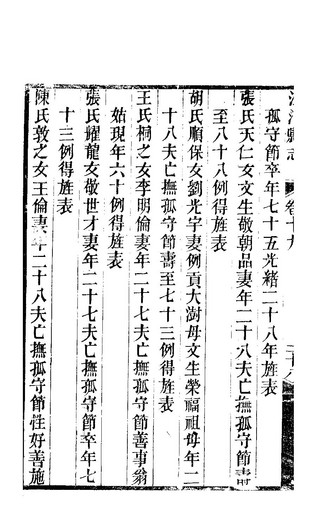 縣志
卷十九
孤守節卒年七十五光緒二十八年旌表
張氏天仁女文生敬朝品妻年二十八夫亡撫孤守節壽
至八十八例得旌表
胡氏順保女劉光字妻例貢大澍母文生榮福祖母年二
十八夫亡撫孤守節壽至七十三例得旌表
王氏桐之女李明倫妻年二十八夫亡撫孤守節善事翁
姑現年六十例得旌表
張氏耀龍女敬世才妻年二十七夫亡撫孤守節卒年七
十三例得旌表
陳氏敦之女王倫妻年二十八夫亡撫孤守節性好善施